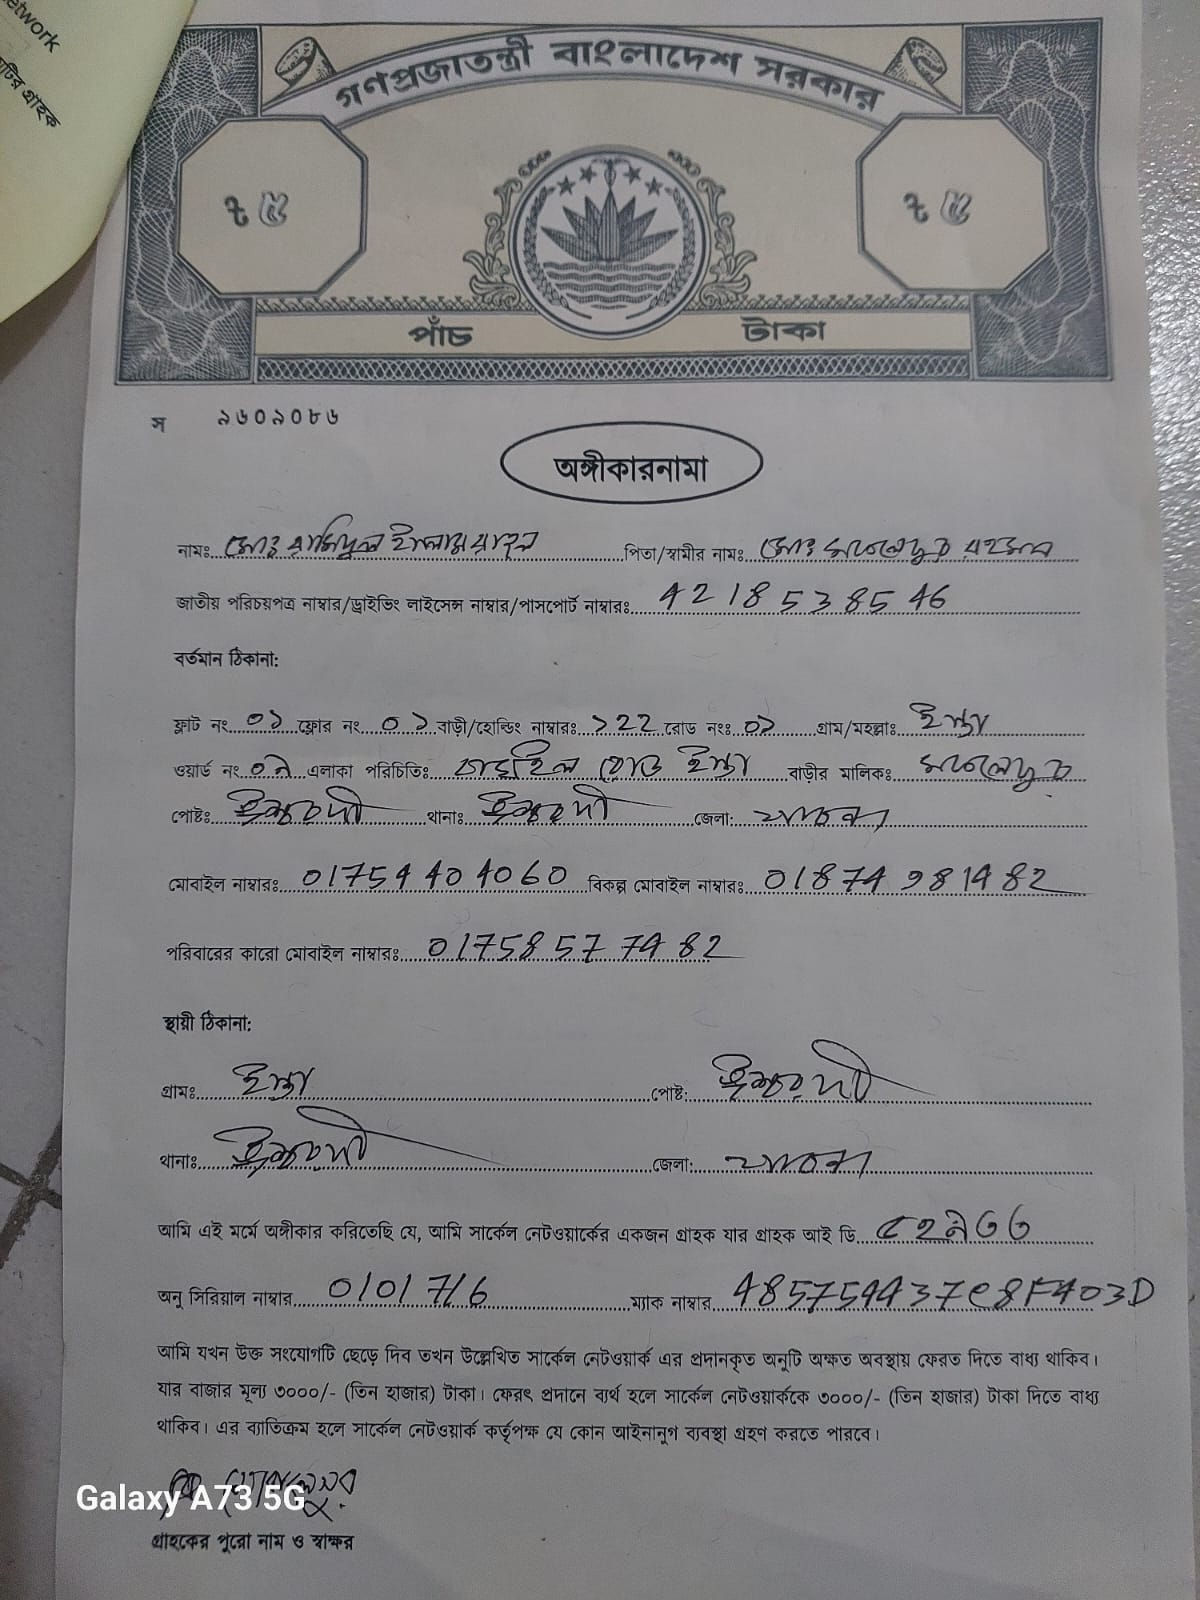 etwork
টির গ্রাহক
গণপ্রজাতন্ত্রী বাংলাদেশ সরকার
৳ ৫ ৳ ৫
পাঁচ টাকা
স ৯৬০৯০৮৬
অঙ্গীকারনামা
নামঃ মোঃ রাসিদুল ইসলাম পিতা/স্বামীর নামঃ মোঃ রহমান
জাতীয় পরিচয়পত্র নাম্বার/ড্রাইভিং লাইসেন্স নাম্বার/পাসপোর্ট নাম্বারঃ 4218538546
বর্তমান ঠিকানা:
ফ্লাট নং ০১ ফ্লোর নং ০১ বাড়ী/হোল্ডিং নাম্বারঃ ১22 রোড নংঃ ০১ গ্রাম/মহল্লাঃ
ওয়ার্ড নং ০৯ এলাকা পরিচিতিঃ রোড বাড়ীর মালিকঃ
পোষ্টঃ ঈশ্বরদী থানাঃ ঈশ্বরদী জেলা: পাবনা
মোবাইল নাম্বারঃ 01754404060 বিকল্প মোবাইল নাম্বারঃ 01874981482
পরিবারের কারো মোবাইল নাম্বারঃ 01758577482
স্থায়ী ঠিকানা:
গ্রামঃ পোষ্ট: ঈশ্বরদী
থানাঃ ঈশ্বরদী জেলা: পাবনা
আমি এই মর্মে অঙ্গীকার করিতেছি যে, আমি সার্কেল নেটওয়ার্কের একজন গ্রাহক যার গ্রাহক আই ডি
অনু সিরিয়াল নাম্বার 0101716 ম্যাক নাম্বার 485754437C8F403D
আমি যখন উক্ত সংযোগটি ছেড়ে দিব তখন উল্লেখিত সার্কেল নেটওয়ার্ক এর প্রদানকৃত অনুটি অক্ষত অবস্থায় ফেরত দিতে বাধ্য থাকিব।
যার বাজার মূল্য ৩০০০/- (তিন হাজার) টাকা। ফেরৎ প্রদানে ব্যর্থ হলে সার্কেল নেটওয়ার্ককে ৩০০০/- (তিন হাজার) টাকা দিতে বাধ্য
থাকিব। এর ব্যাতিক্রম হলে সার্কেল নেটওয়ার্ক কর্তৃপক্ষ যে কোন আইনানুগ ব্যবস্থা গ্রহণ করতে পারবে।
Galaxy A73 5G
গ্রাহকের পুরো নাম ও স্বাক্ষর